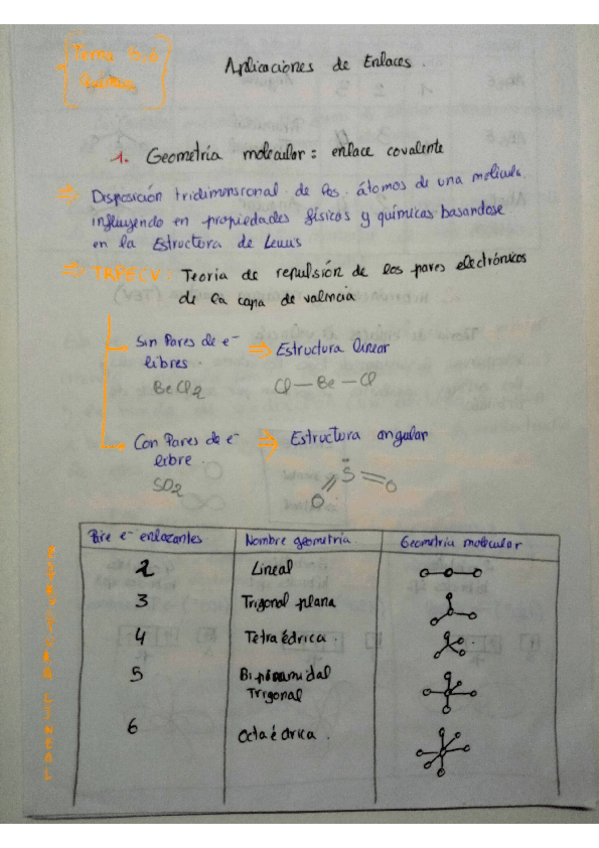 Tema 5 y 6
Química
Aplicaciones de Enlaces.
1. Geometría molecular: enlace covalente
⇒ Disposición tridimensional de los átomos de una molécula
influyendo en propiedades físicas y químicas basandose
en la Estructora de Lewis
⇒ TRPECV: Teoría de repulsión de los pares electrónicos
de la capa de valencia
→ Sin Pares de e⁻ ⇒ Estructura linear
libres.
BeCl2 Cl — Be — Cl
→ Con Pares de e⁻ ⇒ Estructura angular
libre
SO2
S
O O
ESTRUCTURA LINEAL
Pare e⁻ enlazantes Nombre geometría. Geometría molecular
2 Lineal
3 Trigonal plana
4 Tetraédrica.
5 Bipiramidal
Trigonal
6 Octaédrica.